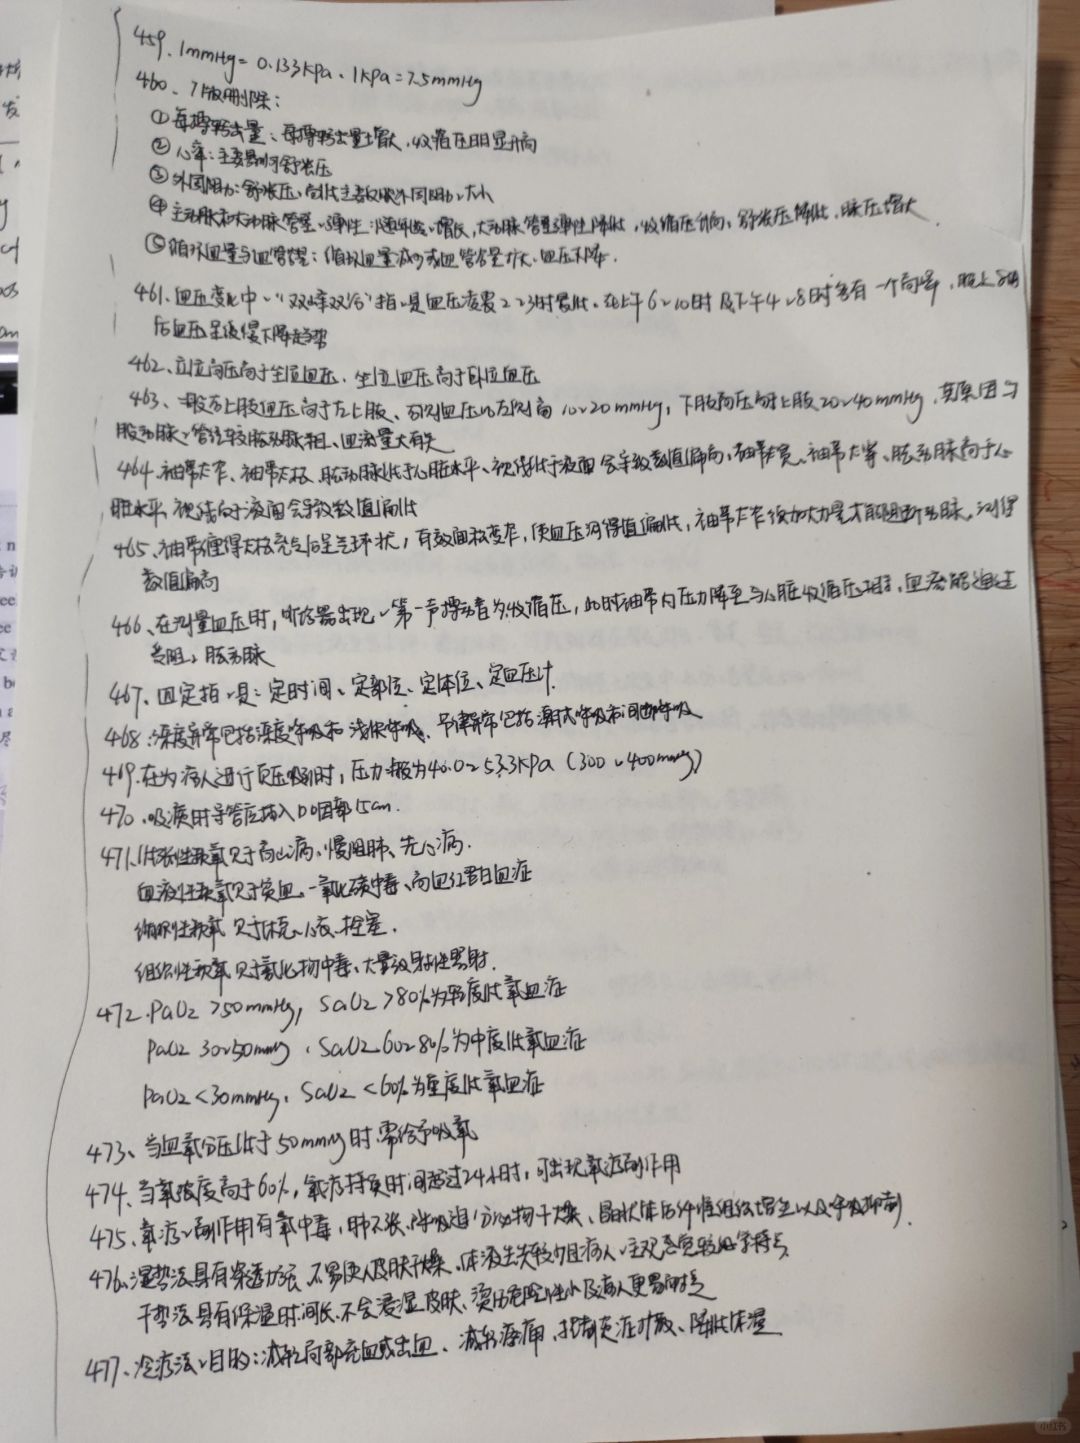 459、1mmHg=0.133kPa、1kPa=7.5mmHg
460、7版删除:
①每搏输出量:每搏输出量增大,收缩压明显升高
②心率:主要影响舒张压
③外周阻力:舒张压高低主要反映外周阻力大小
④主动脉和大动脉管壁弹性:随年龄增长,大动脉管壁弹性降低,收缩压升高,舒张压降低,脉压增大
⑤循环血量与血管容量:循环血量减少或血管容量扩大,血压下降.
461、血压变化中"双峰双谷"指是血压凌晨2~3时最低,在上午6~10时及下午4~8时各有一个高峰,晚上8时
后血压呈缓慢下降趋势
462、立位血压高于坐位血压,坐位血压高于卧位血压
463、一般右上肢血压高于左上肢、右侧血压比左侧高10~20mmHg,下肢血压高于上肢20~40mmHg,其原因与
股动脉管径较肱动脉粗、血流量大有关
464、袖带太窄、袖带太松、肱动脉低于心脏水平、视线低于液面会导致数值偏高、袖带太宽、袖带太紧、肱动脉高于心
脏水平、视线高于液面会导致数值偏低
465、袖带缠得太松充气后呈气球状,有效面积变窄,使血压测得值偏,袖带太窄须加大力量才能阻断动脉,测得
数值偏高
466、在测量血压时,听诊器出现第一声搏动音为收缩压,此时袖带内压力降至与心脏收缩压相等,血液能通过
受阻肱动脉
467、四定指是:定时间、定部位、定体位、定血压计.
468、深度异常包括深度呼吸和浅快呼吸、节律异常包括潮式呼吸和间断呼吸
469、在为病人进行负压吸引时,压力一般为40.0~53.3kPa(300~400mmHg)
470、吸痰时导管应插入口咽部15cm.
471、低张性缺氧见于高山病、慢阻肺、先心病.
血液性缺氧见于贫血、一氧化碳中毒、高血红蛋白血症
循环性缺氧见于休克、心衰、栓塞.
组织性缺氧见于氰化物中毒、大量放射性照射.
472、PaO2>50mmHg,SaO2>80%为轻度低氧血症
PaO2 30~50mmHg、SaO2 60~80%为中度低氧血症
PaO2<30mmHg、SaO2<60%为重度低氧血症
473、当血氧分压低于50mmHg时,需给予吸氧
474、当氧浓度高于60%,氧疗持续时间超过24小时,可出现氧疗副作用
475、氧疗副作用有氧中毒,肺不张、呼吸道分泌物干燥、晶状体后纤维组织增生以及呼吸抑制.
476、湿热法具有穿透力强、不易使人皮肤干燥、体液丢失较少且病人主观感觉较好等特点
干热法具有保温时间长、不会浸湿皮肤、烫伤危险性小及病人更易耐受
477、冷疗法目的:减轻局部充血或出血、减轻疼痛,控制炎症扩散、降低体温
小红书